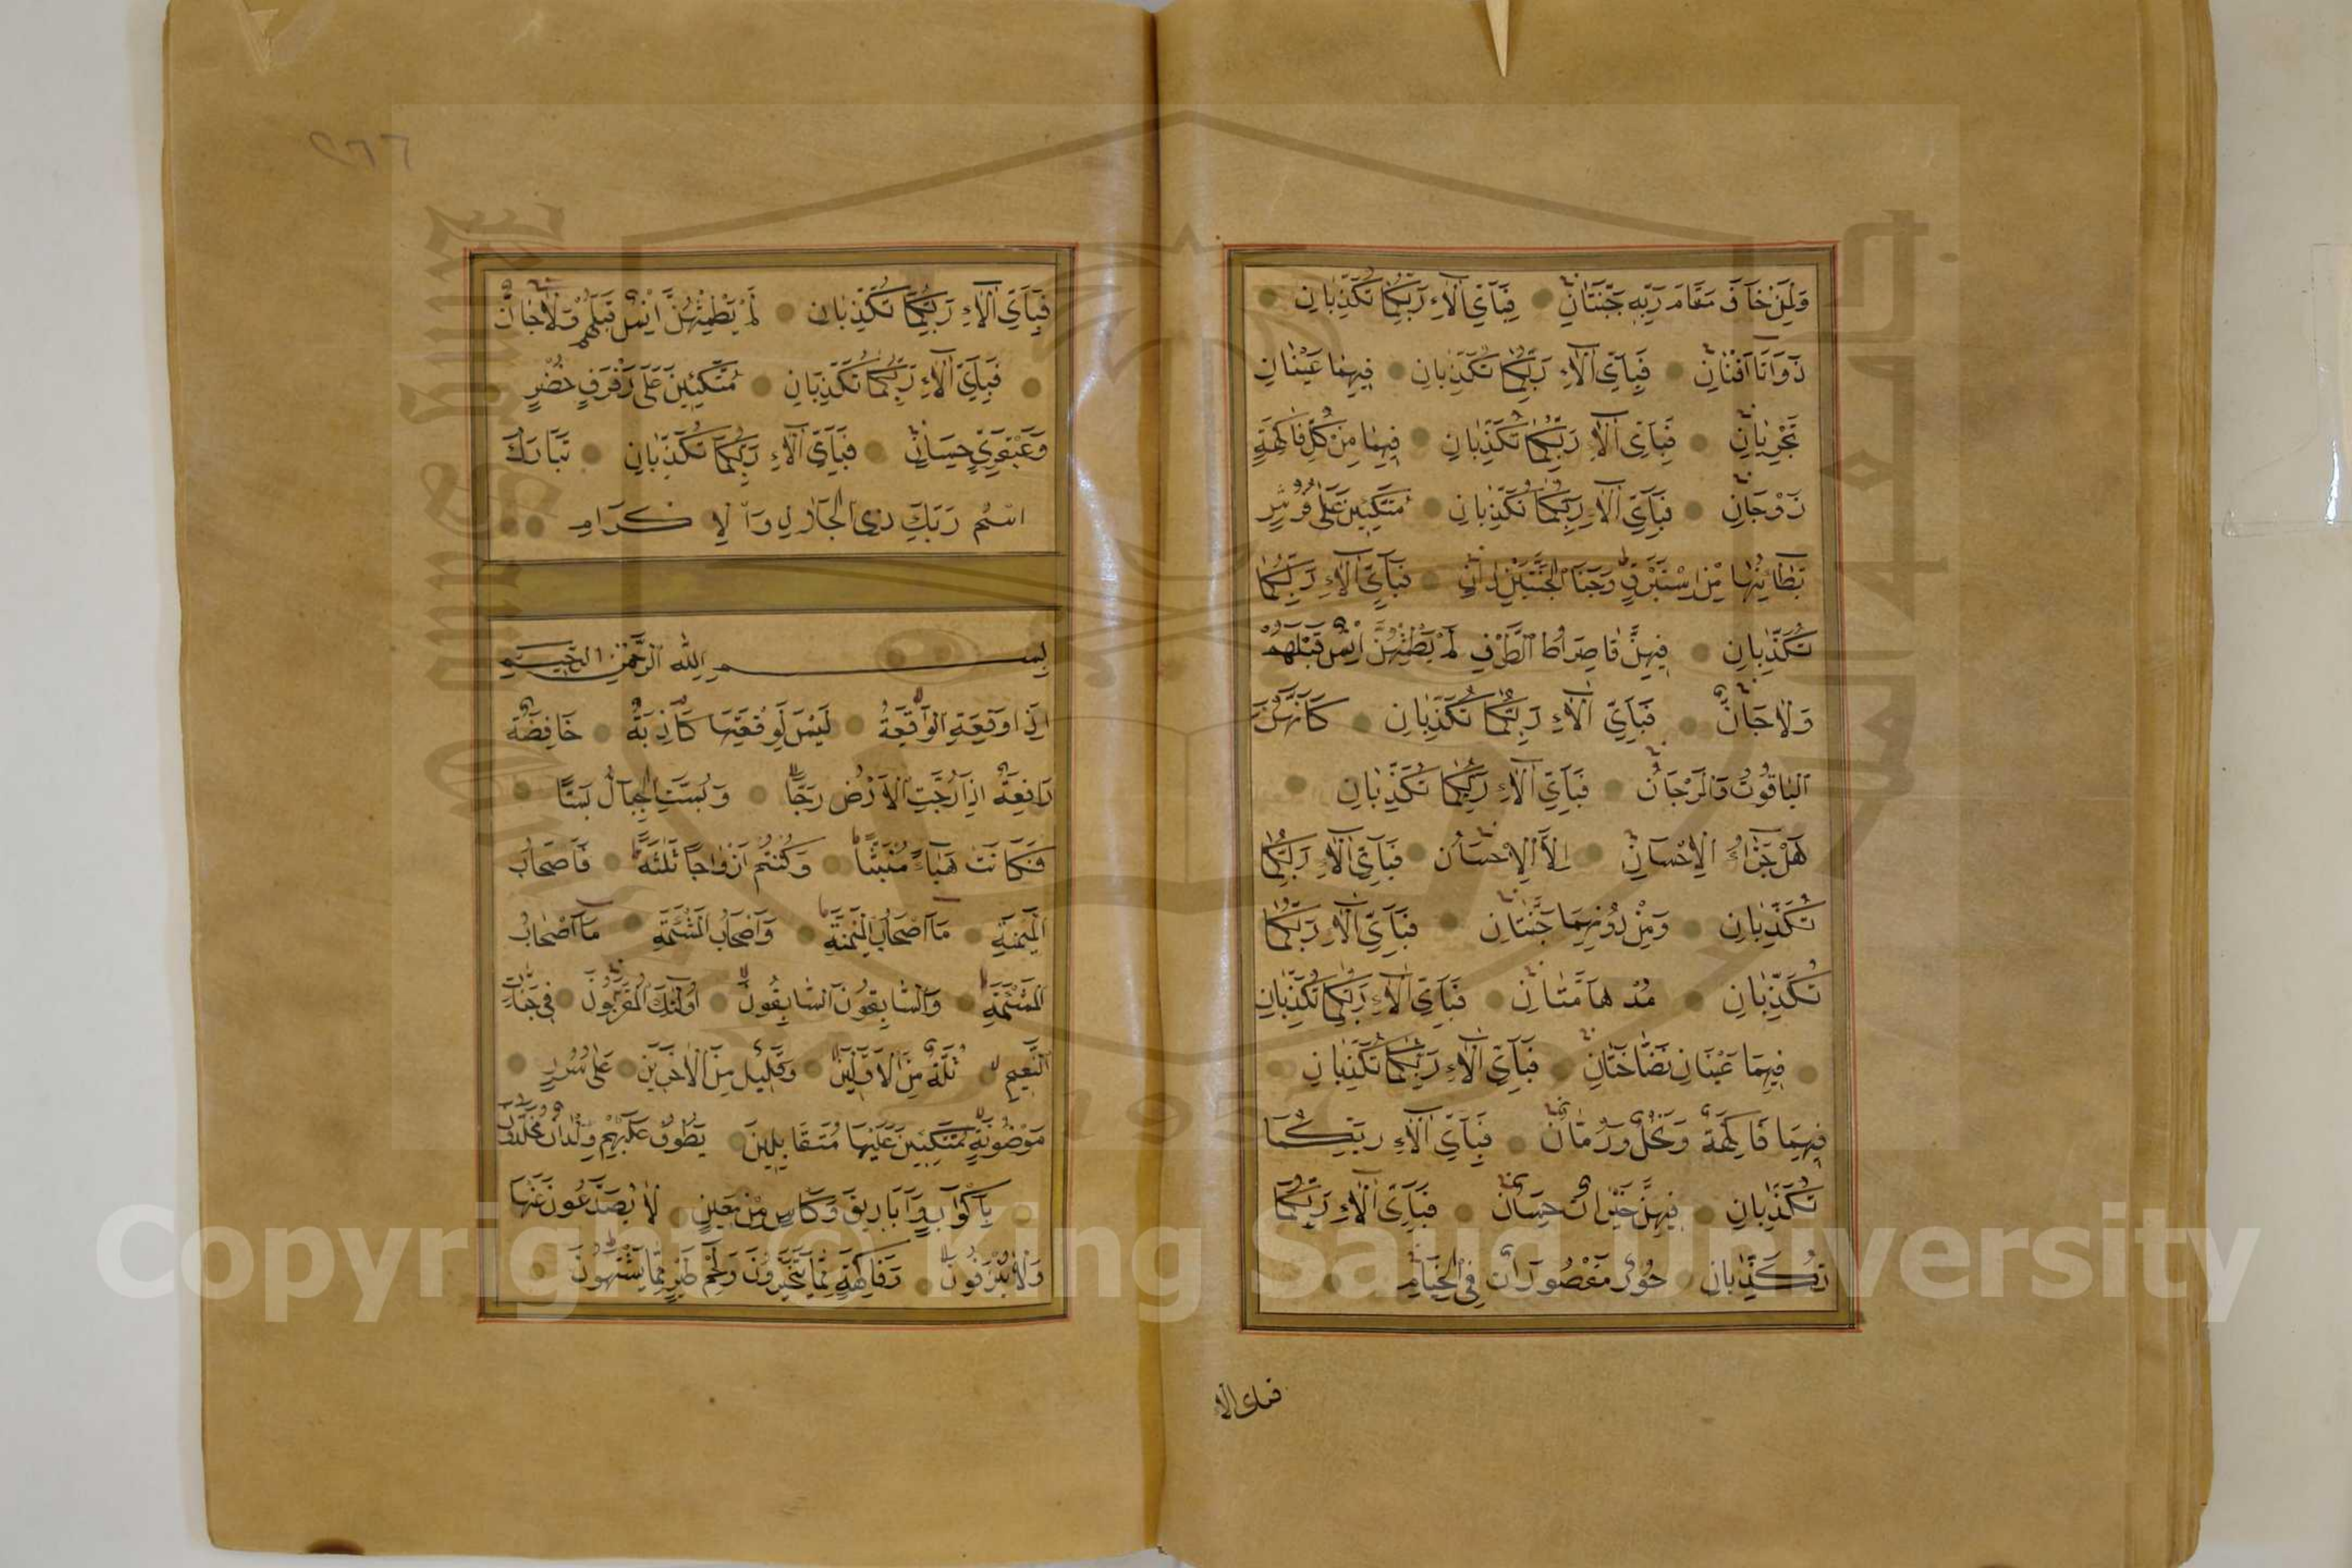 وَلِمَنْ خَافَ مَقَامَ رَبِّهٖ جَنَّتَانِ فَبِاَيِّ اٰلَاءِ رَبِّكُمَا تُكَذِّبَانِ
ذَوَاتَا اَفْنَانٍ فَبِاَيِّ اٰلَاءِ رَبِّكُمَا تُكَذِّبَانِ فِيهِمَا عَيْنَانِ
تَجْرِيَانِ فَبِاَيِّ اٰلَاءِ رَبِّكُمَا تُكَذِّبَانِ فِيهِمَا مِنْ كُلِّ فَاكِهَةٍ
زَوْجَانِ فَبِاَيِّ اٰلَاءِ رَبِّكُمَا تُكَذِّبَانِ مُتَّكِئِينَ عَلٰى فُرُشٍ
بَطَائِنُهَا مِنْ اِسْتَبْرَقٍ وَجَنَا الْجَنَّتَيْنِ دَانٍ فَبِاَيِّ اٰلَاءِ رَبِّكُمَا
تُكَذِّبَانِ فِيهِنَّ قَاصِرَاتُ الطَّرْفِ لَمْ يَطْمِثْهُنَّ اِنْسٌ قَبْلَهُمْ
وَلَا جَانٌّ فَبِاَيِّ اٰلَاءِ رَبِّكُمَا تُكَذِّبَانِ كَاَنَّهُنَّ
الْيَاقُوتُ وَالْمَرْجَانُ فَبِاَيِّ اٰلَاءِ رَبِّكُمَا تُكَذِّبَانِ
هَلْ جَزَاءُ الْاِحْسَانِ اِلَّا الْاِحْسَانُ فَبِاَيِّ اٰلَاءِ رَبِّكُمَا
تُكَذِّبَانِ وَمِنْ دُونِهِمَا جَنَّتَانِ فَبِاَيِّ اٰلَاءِ رَبِّكُمَا
تُكَذِّبَانِ مُدْهَامَّتَانِ فَبِاَيِّ اٰلَاءِ رَبِّكُمَا تُكَذِّبَانِ
فِيهِمَا عَيْنَانِ نَضَّاخَتَانِ فَبِاَيِّ اٰلَاءِ رَبِّكُمَا تُكَذِّبَانِ
فِيهِمَا فَاكِهَةٌ وَنَخْلٌ وَرُمَّانٌ فَبِاَيِّ اٰلَاءِ رَبِّكُمَا
تُكَذِّبَانِ فِيهِنَّ خَيْرَاتٌ حِسَانٌ فَبِاَيِّ اٰلَاءِ رَبِّكُمَا
تُكَذِّبَانِ حُورٌ مَقْصُورَاتٌ فِي الْخِيَامِ
فبای الاء
٢٦٦
فَبِاَيِّ اٰلَاءِ رَبِّكُمَا تُكَذِّبَانِ لَمْ يَطْمِثْهُنَّ اِنْسٌ قَبْلَهُمْ وَلَا جَانٌّ
فَبِاَيِّ اٰلَاءِ رَبِّكُمَا تُكَذِّبَانِ مُتَّكِئِينَ عَلٰى رَفْرَفٍ خُضْرٍ
وَعَبْقَرِيٍّ حِسَانٍ فَبِاَيِّ اٰلَاءِ رَبِّكُمَا تُكَذِّبَانِ تَبَارَكَ
اسْمُ رَبِّكَ ذِي الْجَلَالِ وَالْاِكْرَامِ
بِسْمِ اللّٰهِ الرَّحْمٰنِ الرَّحِيمِ
اِذَا وَقَعَةِ الْوَاقِعَةُ لَيْسَ لِوَقْعَتِهَا كَاذِبَةٌ خَافِضَةٌ
رَافِعَةٌ اِذَا رُجَّتِ الْاَرْضُ رَجًّا وَبُسَّتِ الْجِبَالُ بَسًّا
فَكَانَتْ هَبَاءً مُنْبَثًّا وَكُنْتُمْ اَزْوَاجًا ثَلٰثَةً فَاَصْحَابُ
الْمَيْمَنَةِ مَا اَصْحَابُ الْمَيْمَنَةِ وَاَصْحَابُ الْمَشْئَمَةِ مَا اَصْحَابُ
الْمَشْئَمَةِ وَالسَّابِقُونَ السَّابِقُونَ اُولٰئِكَ الْمُقَرَّبُونَ فِي جَنَّاتِ
النَّعِيمِ ثُلَّةٌ مِنَ الْاَوَّلِينَ وَقَلِيلٌ مِنَ الْاٰخِرِينَ عَلٰى سُرُرٍ
مَوْضُونَةٍ مُتَّكِئِينَ عَلَيْهَا مُتَقَابِلِينَ يَطُوفُ عَلَيْهِمْ وِلْدَانٌ مُخَلَّدُونَ
بِاَكْوَابٍ وَاَبَارِيقَ وَكَاْسٍ مِنْ مَعِينٍ لَا يُصَدَّعُونَ عَنْهَا
وَلَا يُنْزِفُونَ وَفَاكِهَةٍ مِمَّا يَتَخَيَّرُونَ وَلَحْمِ طَيْرٍ مِمَّا يَشْتَهُونَ
Copyright © King Saud University